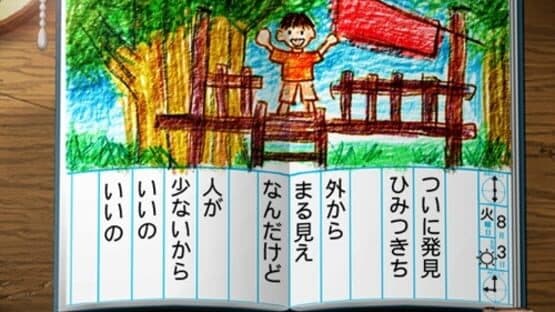 8月3日
火曜日
ついに発見
ひみつきち
外から
まる見え
なんだけど
人が
少ないから
いいの
いいの